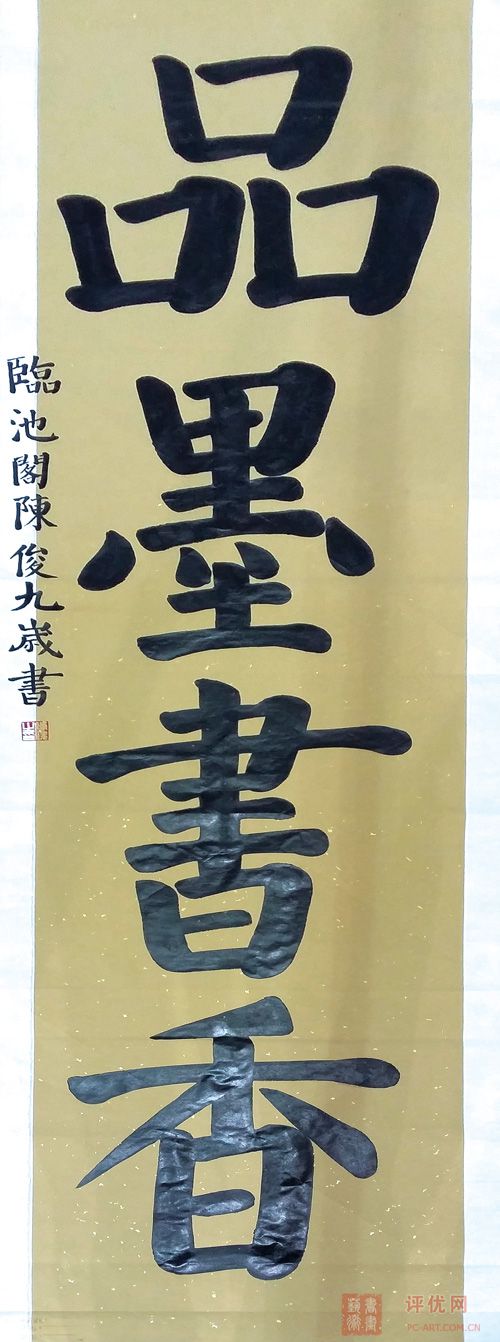 品墨書香
臨池閣陳俊九歲書
评优网
PC-ART.COM.CN